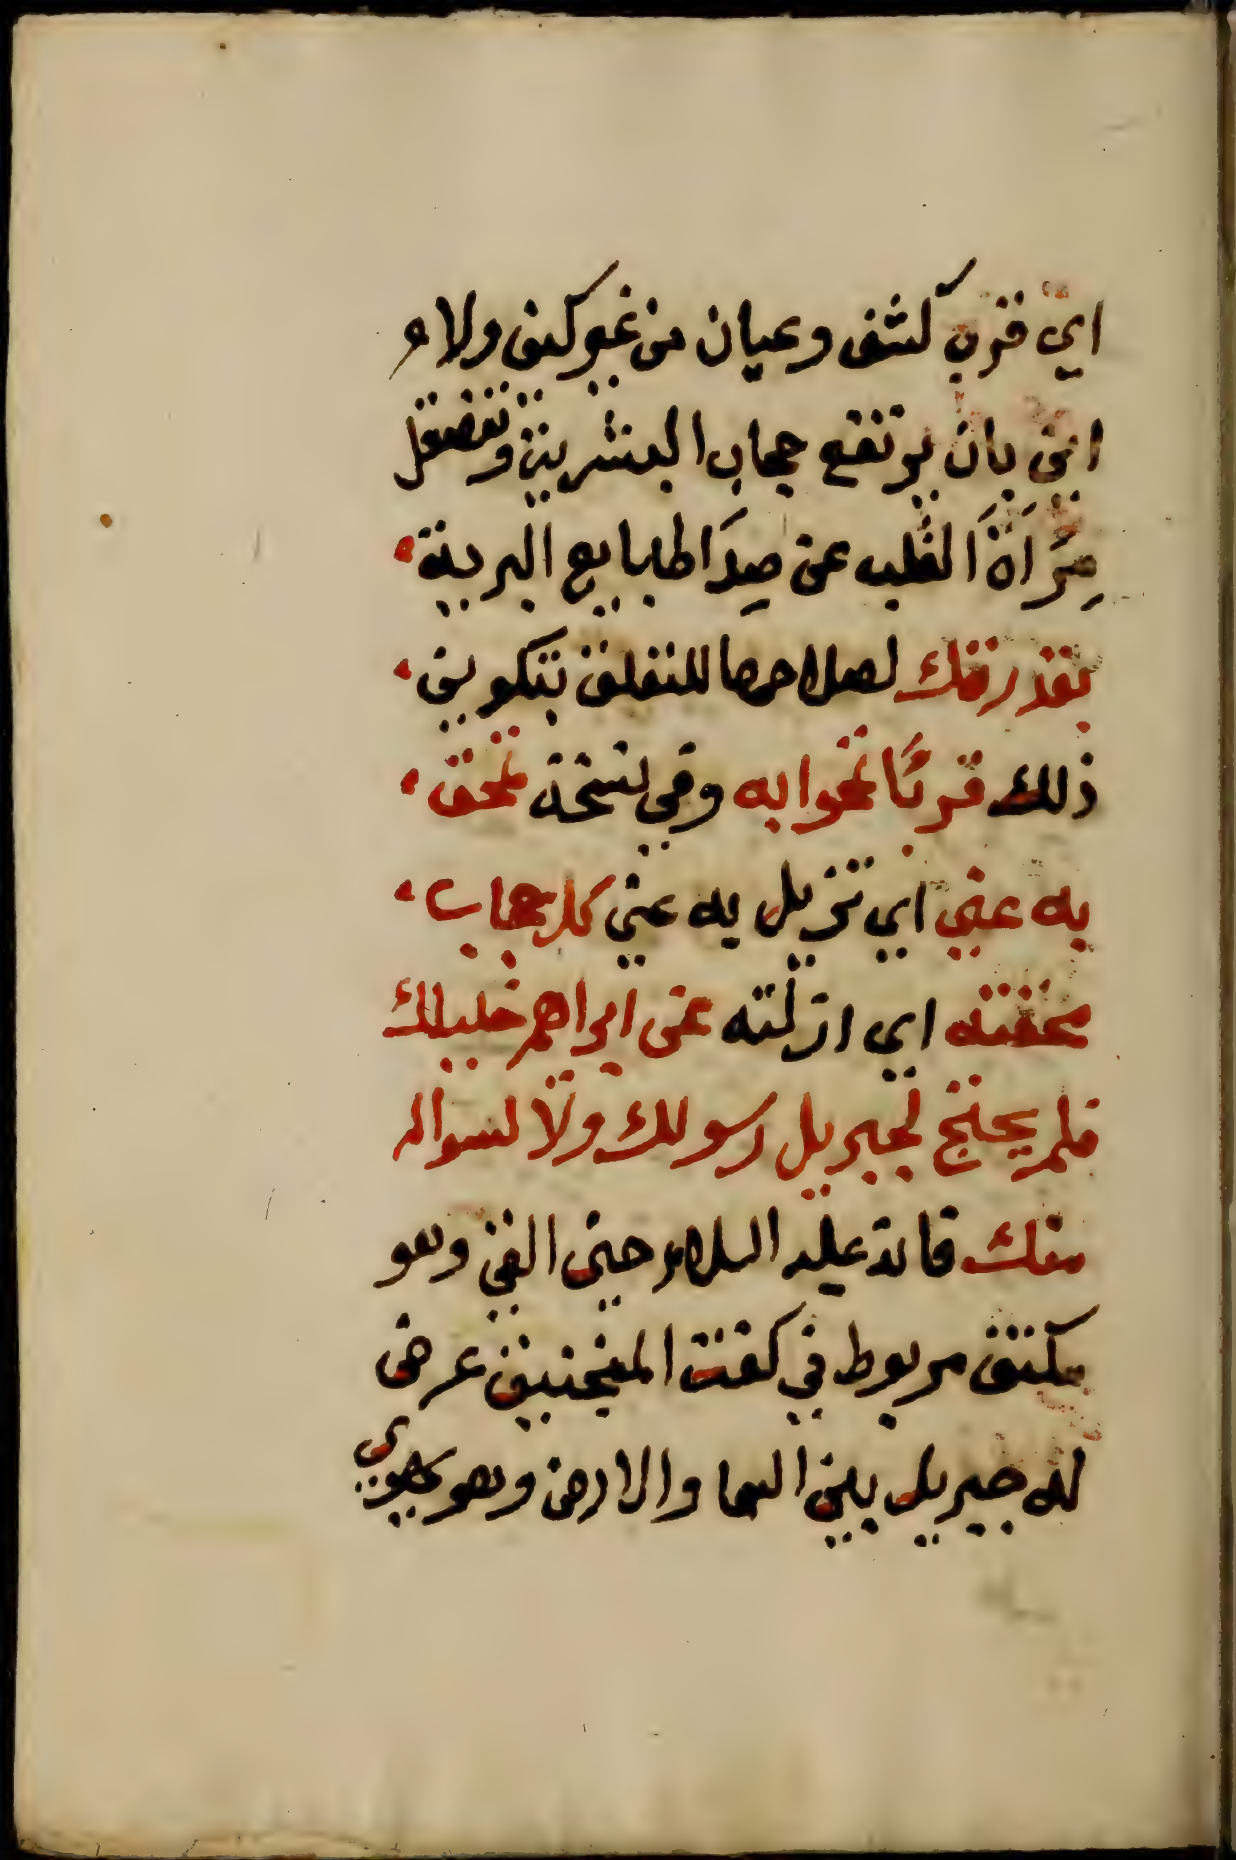 اي قرب كشف وعيان من غير كيف ولا
اين بان يرتفع حجاب البشرية وتنصقل
مِرْآةُ القلب عن صدَا طبايع البرية
بقدرتك لصلاحها للتعلق بتكوين
ذلك قربًا تمحوا به وفي نسخة تمحق
به عني اي تزيل به عني كل حجاب
محقته اي ازلته عن ابراهيم خليلك
فلم يحتج لجبريل رسولك ولا لسواله
منك فانه عليه السلام حين القي وهو
مكتف مربوط في كفت المنجنيق عرض
له جبريل بين السما والارض وهو يهوي